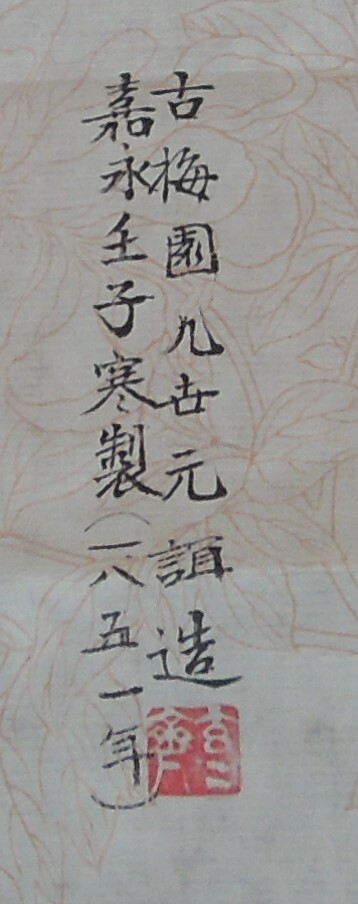 古梅園九世元誼造
嘉永壬子寒製(一八五一年)